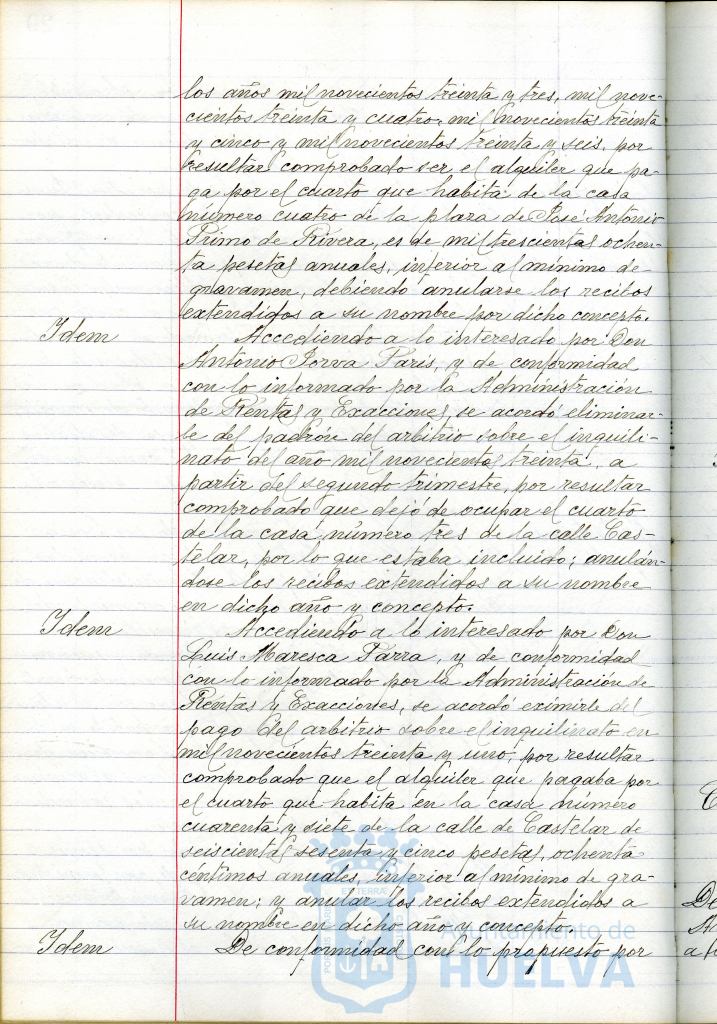 los años mil novecientos treinta y tres, mil nove-
cientos treinta y cuatro, mil novecientos treinta
y cinco y mil novecientos treinta y seis, por
resultar comprobado ser el alquiler que pa-
ga por el cuarto que habita de la casa
número cuatro de la plaza de José Antonio
Primo de Rivera, es de mil trescientas ochen-
ta pesetas anuales, inferior al mínimo de
gravamen, debiendo anularse los recibos
extendidos a su nombre por dicho concepto.
Idem
Accediendo a lo interesado por Don
Antonio Jorva Paris, y de conformidad
con lo informado por la Administración
de Rentas y Exacciones, se acordó eliminar-
le del padrón del arbitrio sobre el inquili-
nato del año mil novecientos treinta, a
partir del segundo trimestre, por resultar
comprobado que dejó de ocupar el cuarto
de la casa número tres de la calle Cas-
telar, por lo que estaba incluido; anulán-
dose los recibos extendidos a su nombre
en dicho año y concepto.
Idem
Accediendo a lo interesado por Don
Luis Maresca Parra, y de conformidad
con lo informado por la Administración de
Rentas y Exacciones, se acordó eximirle del
pago del arbitrio sobre el inquilinato en
mil novecientos treinta y uno, por resultar
comprobado que el alquiler que pagaba por
el cuarto que habita en la casa número
cuarenta y siete de la calle de Castelar de
seiscientas sesenta y cinco pesetas, ochenta
centimos anuales, inferior al mínimo de gra-
vamen; y anular los recibos extendidos a
su nombre en dicho año y concepto.
Idem
De conformidad con lo propuesto por
Ayuntamiento de
HUELVA